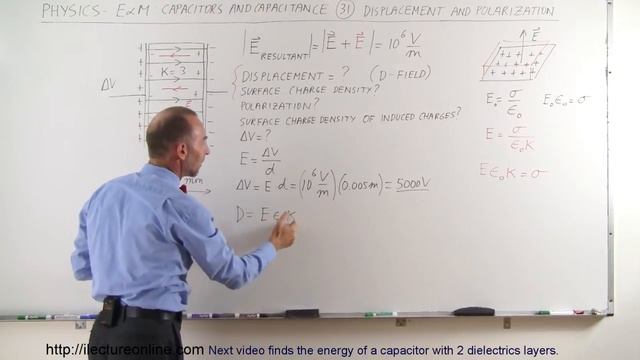 PHYSICS - E&M CAPACITORS AND CAPACITANCE (31) DISPLACEMENT AND POLARIZATION
|E⃗ RESULTANT| = |E⃗ + E⃗| = 10⁶ V/m
K=3
ΔV
mm
DISPLACEMENT = ? (D-FIELD)
SURFACE CHARGE DENSITY?
POLARIZATION?
SURFACE CHARGE DENSITY OF INDUCED CHARGES?
ΔV = ?
E = ΔV/d
ΔV = E d = (10⁶ V/m)(0.005m) = 5000V
D = E ε₀ K
E⃗
E₀ = σ/ε₀ E₀ε₀ = σ
E = σ/ε₀K
E ε₀ K = σ
http://ilectureonline.com Next video finds the energy of a capacitor with 2 dielectrics layers.